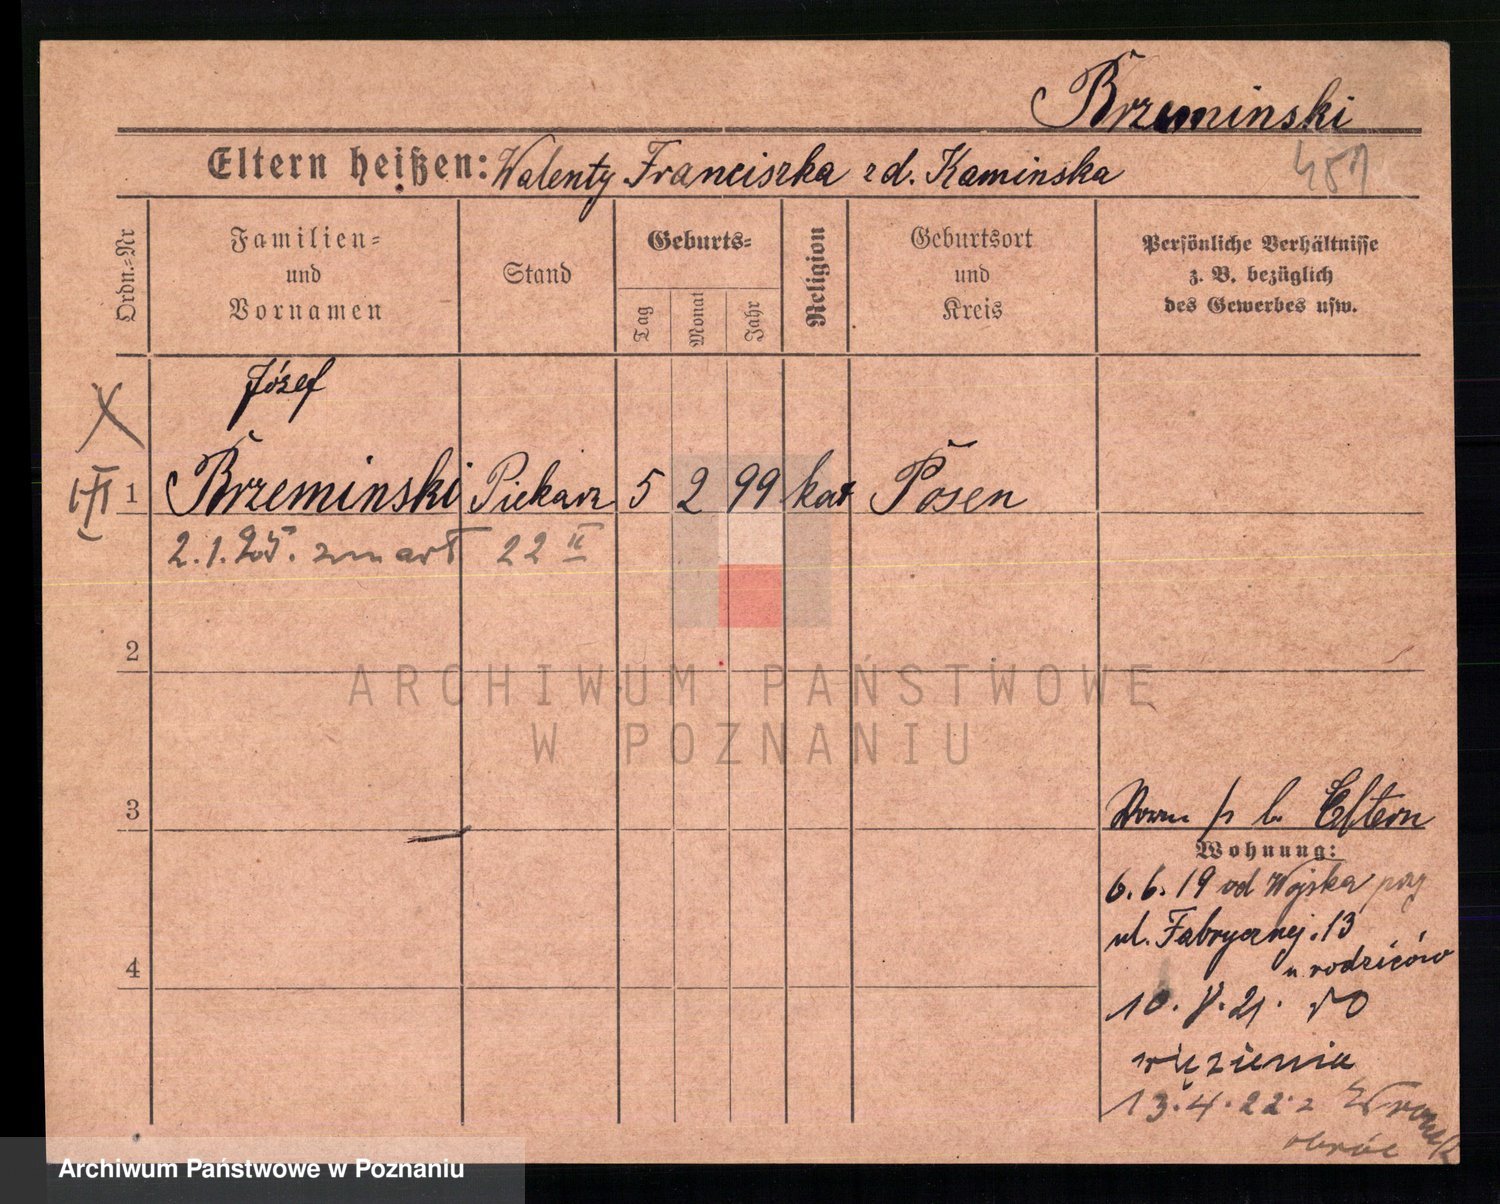 Brzeminski
451
Eltern heißen: Walenty Franciszka zd. Kaminska
Ordn.-Nr
Familien-
und
Vornamen
Stand
Geburts-
Tag
Monat
Jahr
Religion
Geburtsort
und
Kreis
Persönliche Verhältnisse
z. B. bezüglich
des Gewerbes usw.
Józef
III 1 Brzeminski Piekarz 5 2 99 kat Posen
2.1.25. zmarł 22 II
2
ARCHIWUM PAŃSTWOWE
W POZNANIU
3
b. Eltern
Wohnung:
6.6.19 od Wojska przy
ul. Fabrycznej 13
u rodziców
4
10. V. 21. do
więzienia
13.4.22 z Wronek
obróc
Archiwum Państwowe w Poznaniu